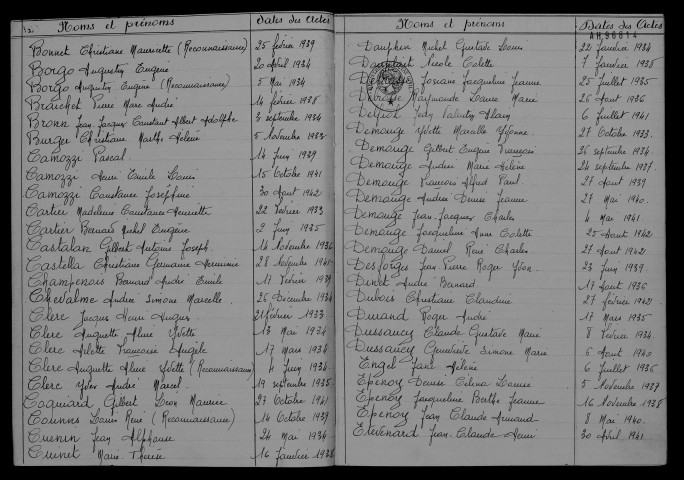 Noms et prénoms Dates des Actes
Bonnet Christiane Mauricette (Reconnaissance) 25 février 1939
Borgo Augustin Eugène 20 avril 1934
Borgo Augustin Eugène (Reconnaissance) 5 Mai 1934
Braichet Pierre Marc André 14 février 1938
Bronn Jean Jacques Constant Albert Adolphe 3 septembre 1934
Burger Christiane Marthe Hélène 5 Novembre 1933
Camozzi Pascal 14 Juin 1939
Camozzi Henri Emile Louis 15 Octobre 1941
Camozzi Constance Joséphine 30 Août 1942
Cartier Madeleine Constance Henriette 22 Février 1933
Cartier Bernard Michel Eugène 2 Juin 1935
Castalan Gilbert Antoine Joseph 14 Novembre 1936
Castella Christiane Germaine 28 Novembre 1941
Champenois Bernard André Emile 17 Février 1939
Chevalme André Simone Marcelle 26 Décembre 1934
Clerc Jacques Henri Hugues 21 février 1933
Clerc Huguette Aline Yvette 13 Mai 1934
Clerc Arlette Françoise Angèle 17 Mars 1934
Clerc Huguette Aline Yvette (Reconnaissance) 4 Juin 1934
Clerc Yves André Marcel 19 septembre 1935
Coquiard Gilbert Léon Maurice 23 Octobre 1941
Louis René (Reconnaissance) 14 Octobre 1939
Cuenin Jean Alphonse 24 Mai 1934
Cuenet Marie Thérèse 16 Janvier 1938
Noms et prénoms Dates des Actes
AH96614
Dauphin Michel Gustave Louis 22 Janvier 1934
Nicole Colette 7 Janvier 1938
Josiane Jacqueline Jeanne 25 Juillet 1935
Raymonde Louise Marie 26 Août 1936
Jean Valentin Alain 6 Juillet 1941
Demouge Yvette Marcelle Yvonne 21 Octobre 1933
Demouge Gilbert Eugène François 26 septembre 1934
Demouge Andrée Marie Hélène 24 septembre 1937
Demouge François Alfred Paul 27 Août 1939
Demouge Andrée Denise Jeanne 27 Mai 1940
Demouge Jean-Jacques Charles 4 Mai 1941
Demouge Jacqueline Anne Colette 25 Août 1942
Demouge Daniel René Charles 27 Août 1942
Desforges Jean Pierre Roger Yvon 23 Juin 1939
André Bernard 17 Août 1936
Dubois Christiane Claudine 27 février 1942
Durand Roger André 17 Mars 1935
Dussaucy Claude Gustave Marie 8 Février 1934
Dussaucy Geneviève Simone Marie 6 Août 1940
Engel Jane Hélène 6 Juillet 1936
Epenoy Denise Célina Louise 5 Novembre 1937
Epenoy Jacqueline Berthe Jeanne 16 Novembre 1938
Epenoy Jean Claude Armand 8 Mai 1940
Etevenard Jean-Claude Henri 30 Avril 1941